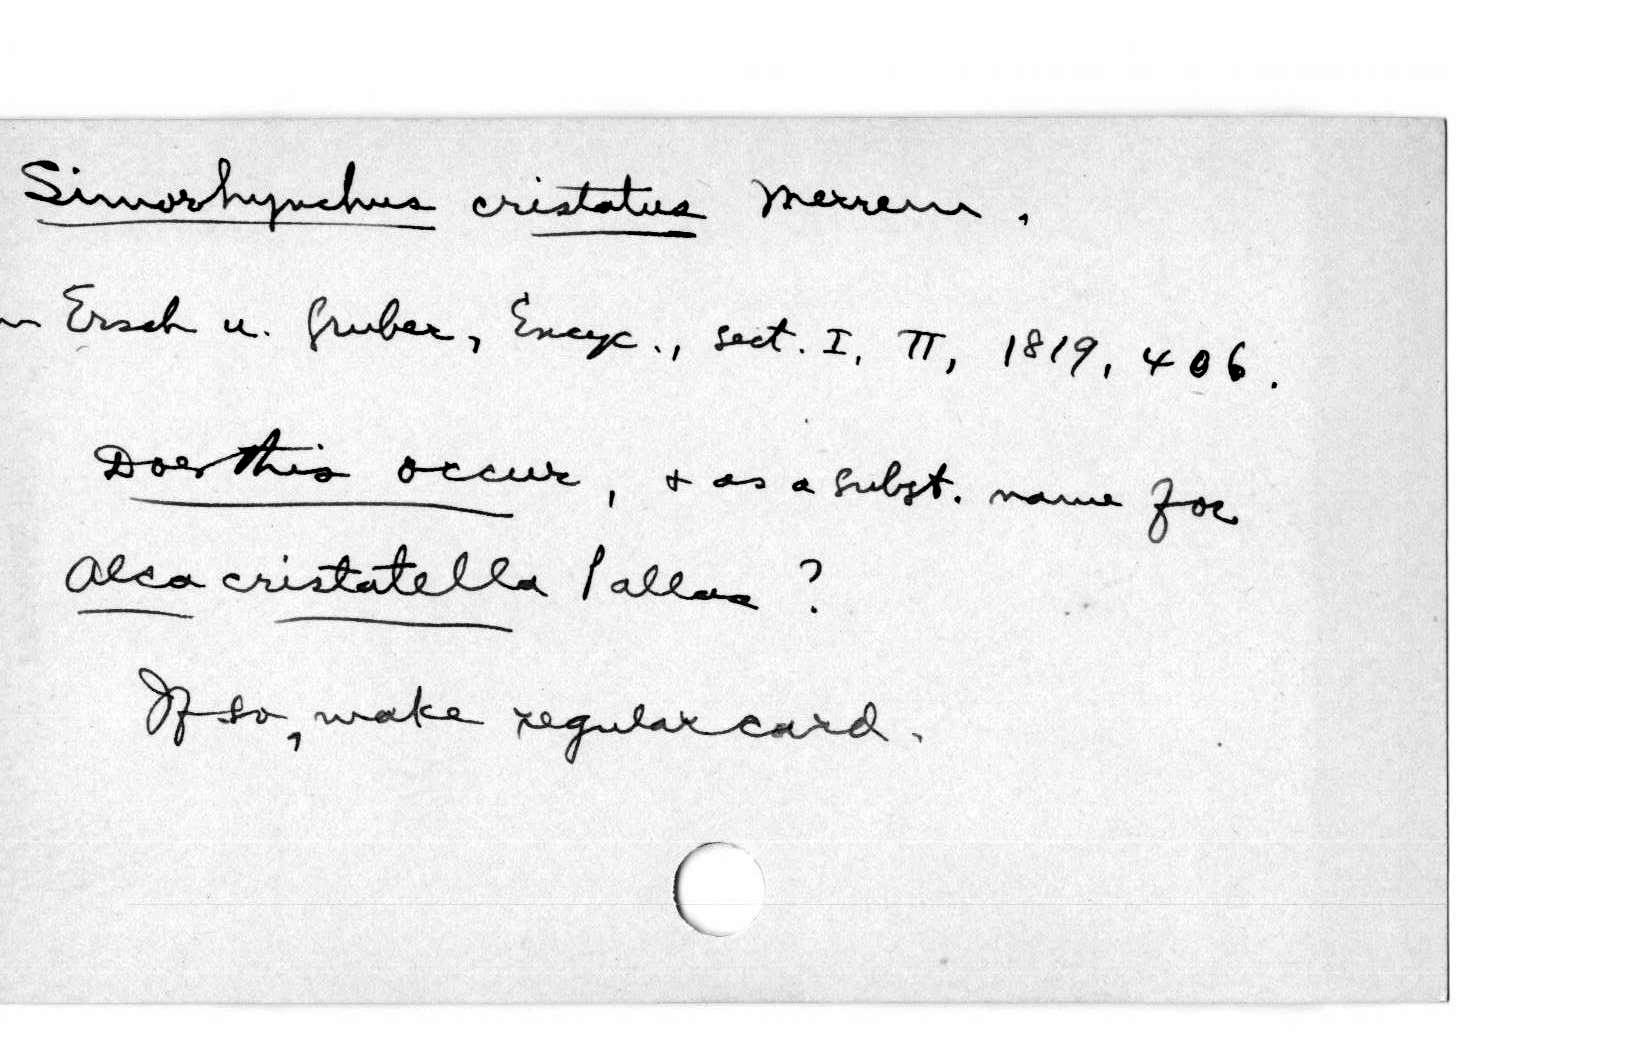 Simorhynchus cristatus Merrem.
Ersch u. Gruber, Encyc., sect. I, II, 1819, 406.
Does this occur, & as a subst. name for
Alca cristatella Pallas?
If so, make regular card.